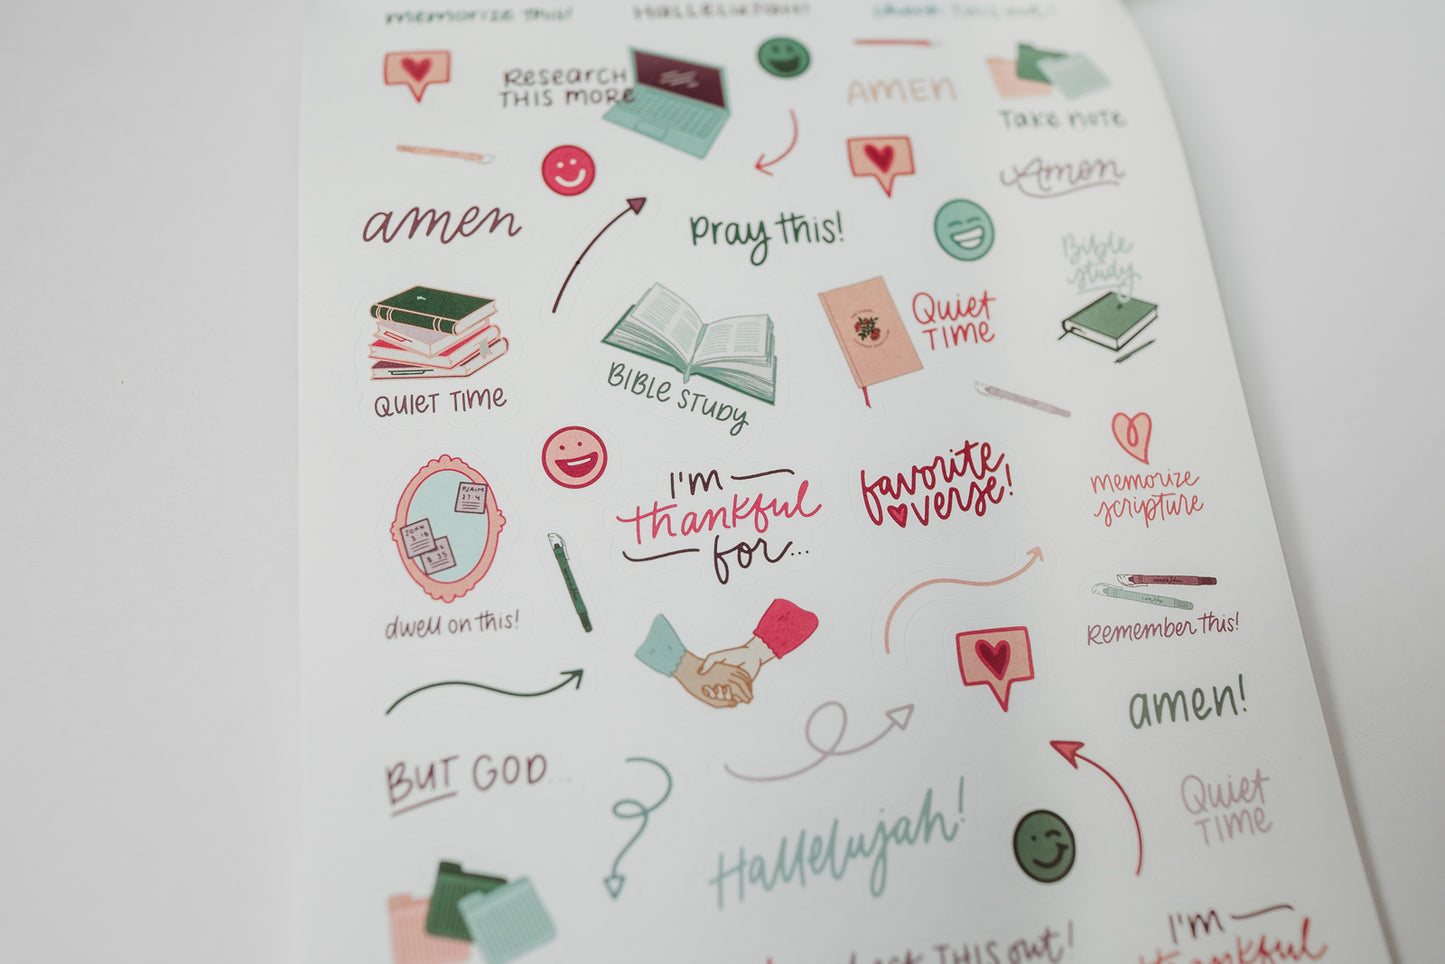 memorize this!
Hallelujah!
check this out!
Research
THIS MORE
AMEN
Take note
Amen
amen
Pray this!
Bible
study
Quiet
TIME
QUIET TIME
BIBLE STUDY
PSALM
27:4
JOHN
3:16
I'm
thankful
for...
favorite
verse!
memorize
scripture
dwell on this!
Remember this!
amen!
BUT GOD...
Quiet
TIME
Hallelujah!
check THIS out!
I'm
thankful